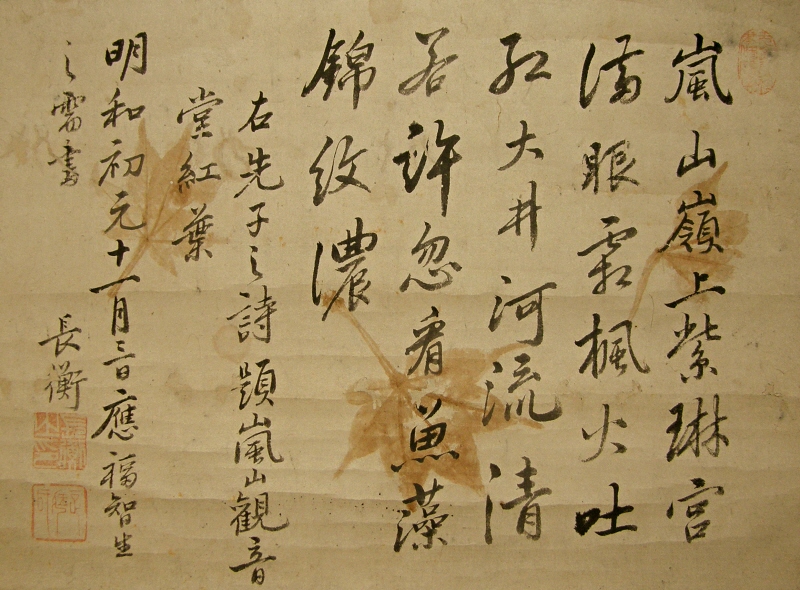 嵐山嶺上紫琳宮
満眼霜楓火吐
紅大井河流清
若許忽看魚藻
錦紋濃
右先子之詩題嵐山觀音
堂紅葉
明和初元十一月三日應福智生
之需書
長衡